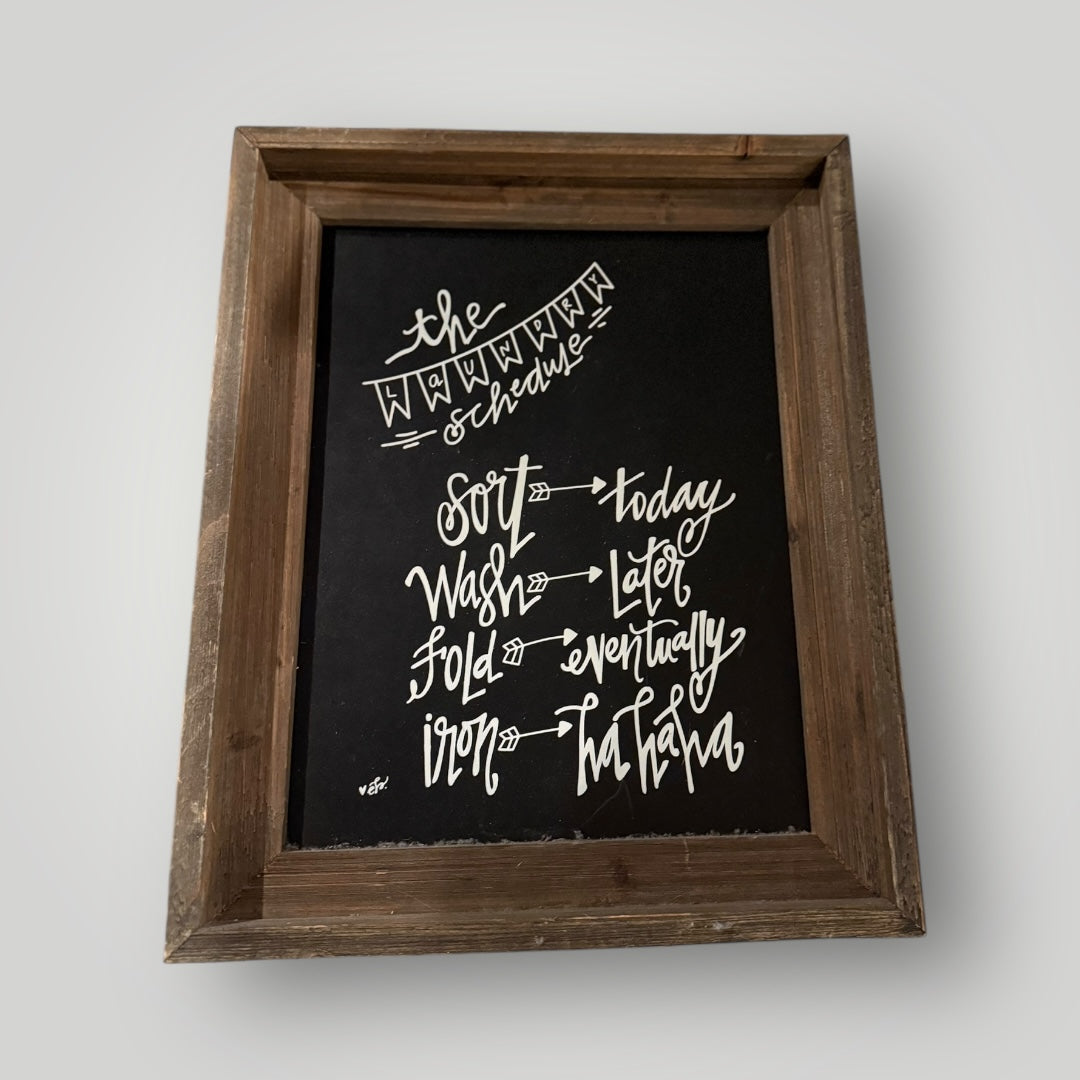 the
LaUNDRY
schedule
Sort today
Wash Later
Fold eventually
iron ha ha ha